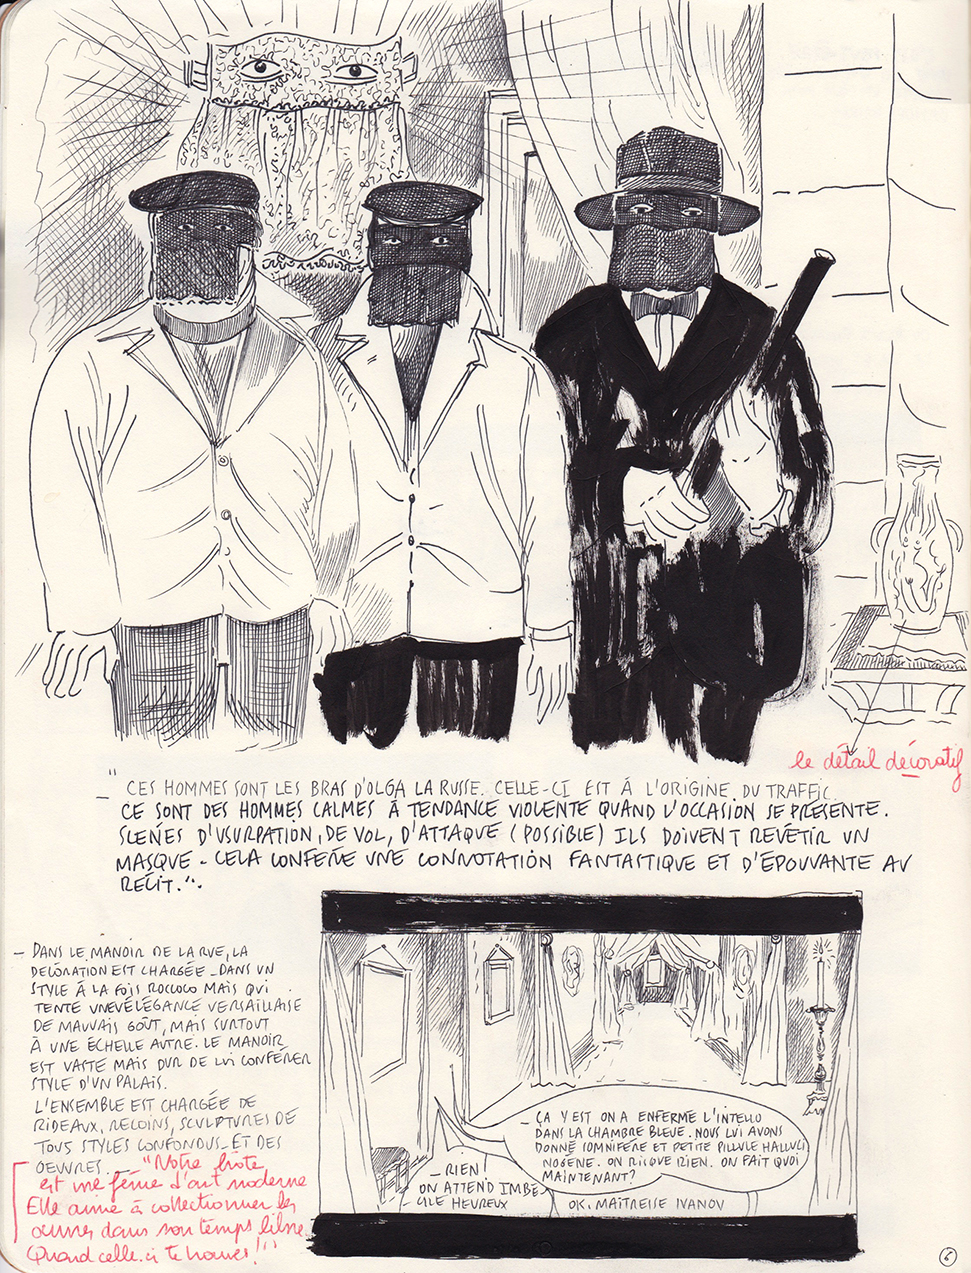 le détail décoratif
"
— CES HOMMES SONT LES BRAS D'OLGA LA RUSSE. CELLE-CI EST À L'ORIGINE DU TRAFFIC.
CE SONT DES HOMMES CALMES À TENDANCE VIOLENTE QUAND L'OCCASION SE PRESENTE.
SCENÉS D'USURPATION, DE VOL, D'ATTAQUE (POSSIBLE) ILS DOIVENT REVÊTIR UN
MASQUE - CELA CONFÈRE UNE CONNOTATION FANTASTIQUE ET D'ÉPOUVANTE AU
RÉCIT.".
— DANS LE MANOIR DE LA RUE, LA
DÉCORATION EST CHARGÉE - DANS UN
STYLE À LA FOIS ROCOCO MAIS QUI
TENTE UNE ÉLÉGANCE VERSAILLAISE
DE MAUVAIS GOÛT, MAIS SURTOUT
À UNE ÉCHELLE AUTRE. LE MANOIR
EST VASTE MAIS DUR DE LUI CONFÉRER
STYLE D'UN PALAIS.
L'ENSEMBLE EST CHARGÉE DE
RIDEAUX, RECOINS, SCULPTURES DE
TOUS STYLES CONFONDUS - ET DES
OEUVRES. — "Notre hôte,
est une féme d'art moderne
Elle aime à collectionner les
oeuvres dans son temps libre.
Quand celle.ci te trouves!"
— ÇA Y EST ON A ENFERMÉ L'INTELLO
DANS LA CHAMBRE BLEUE. NOUS LUI AVONS
DONNÉ SOMNIFÈRE ET PETITE PILULE HALLUCI
NOGÈNE. ON RISQUE RIEN. ON FAIT QUOI
MAINTENANT?
— RIEN!
ON ATTEND IMBÉ
CILE HEUREUX
OK. MAÎTRESSE IVANOV
6